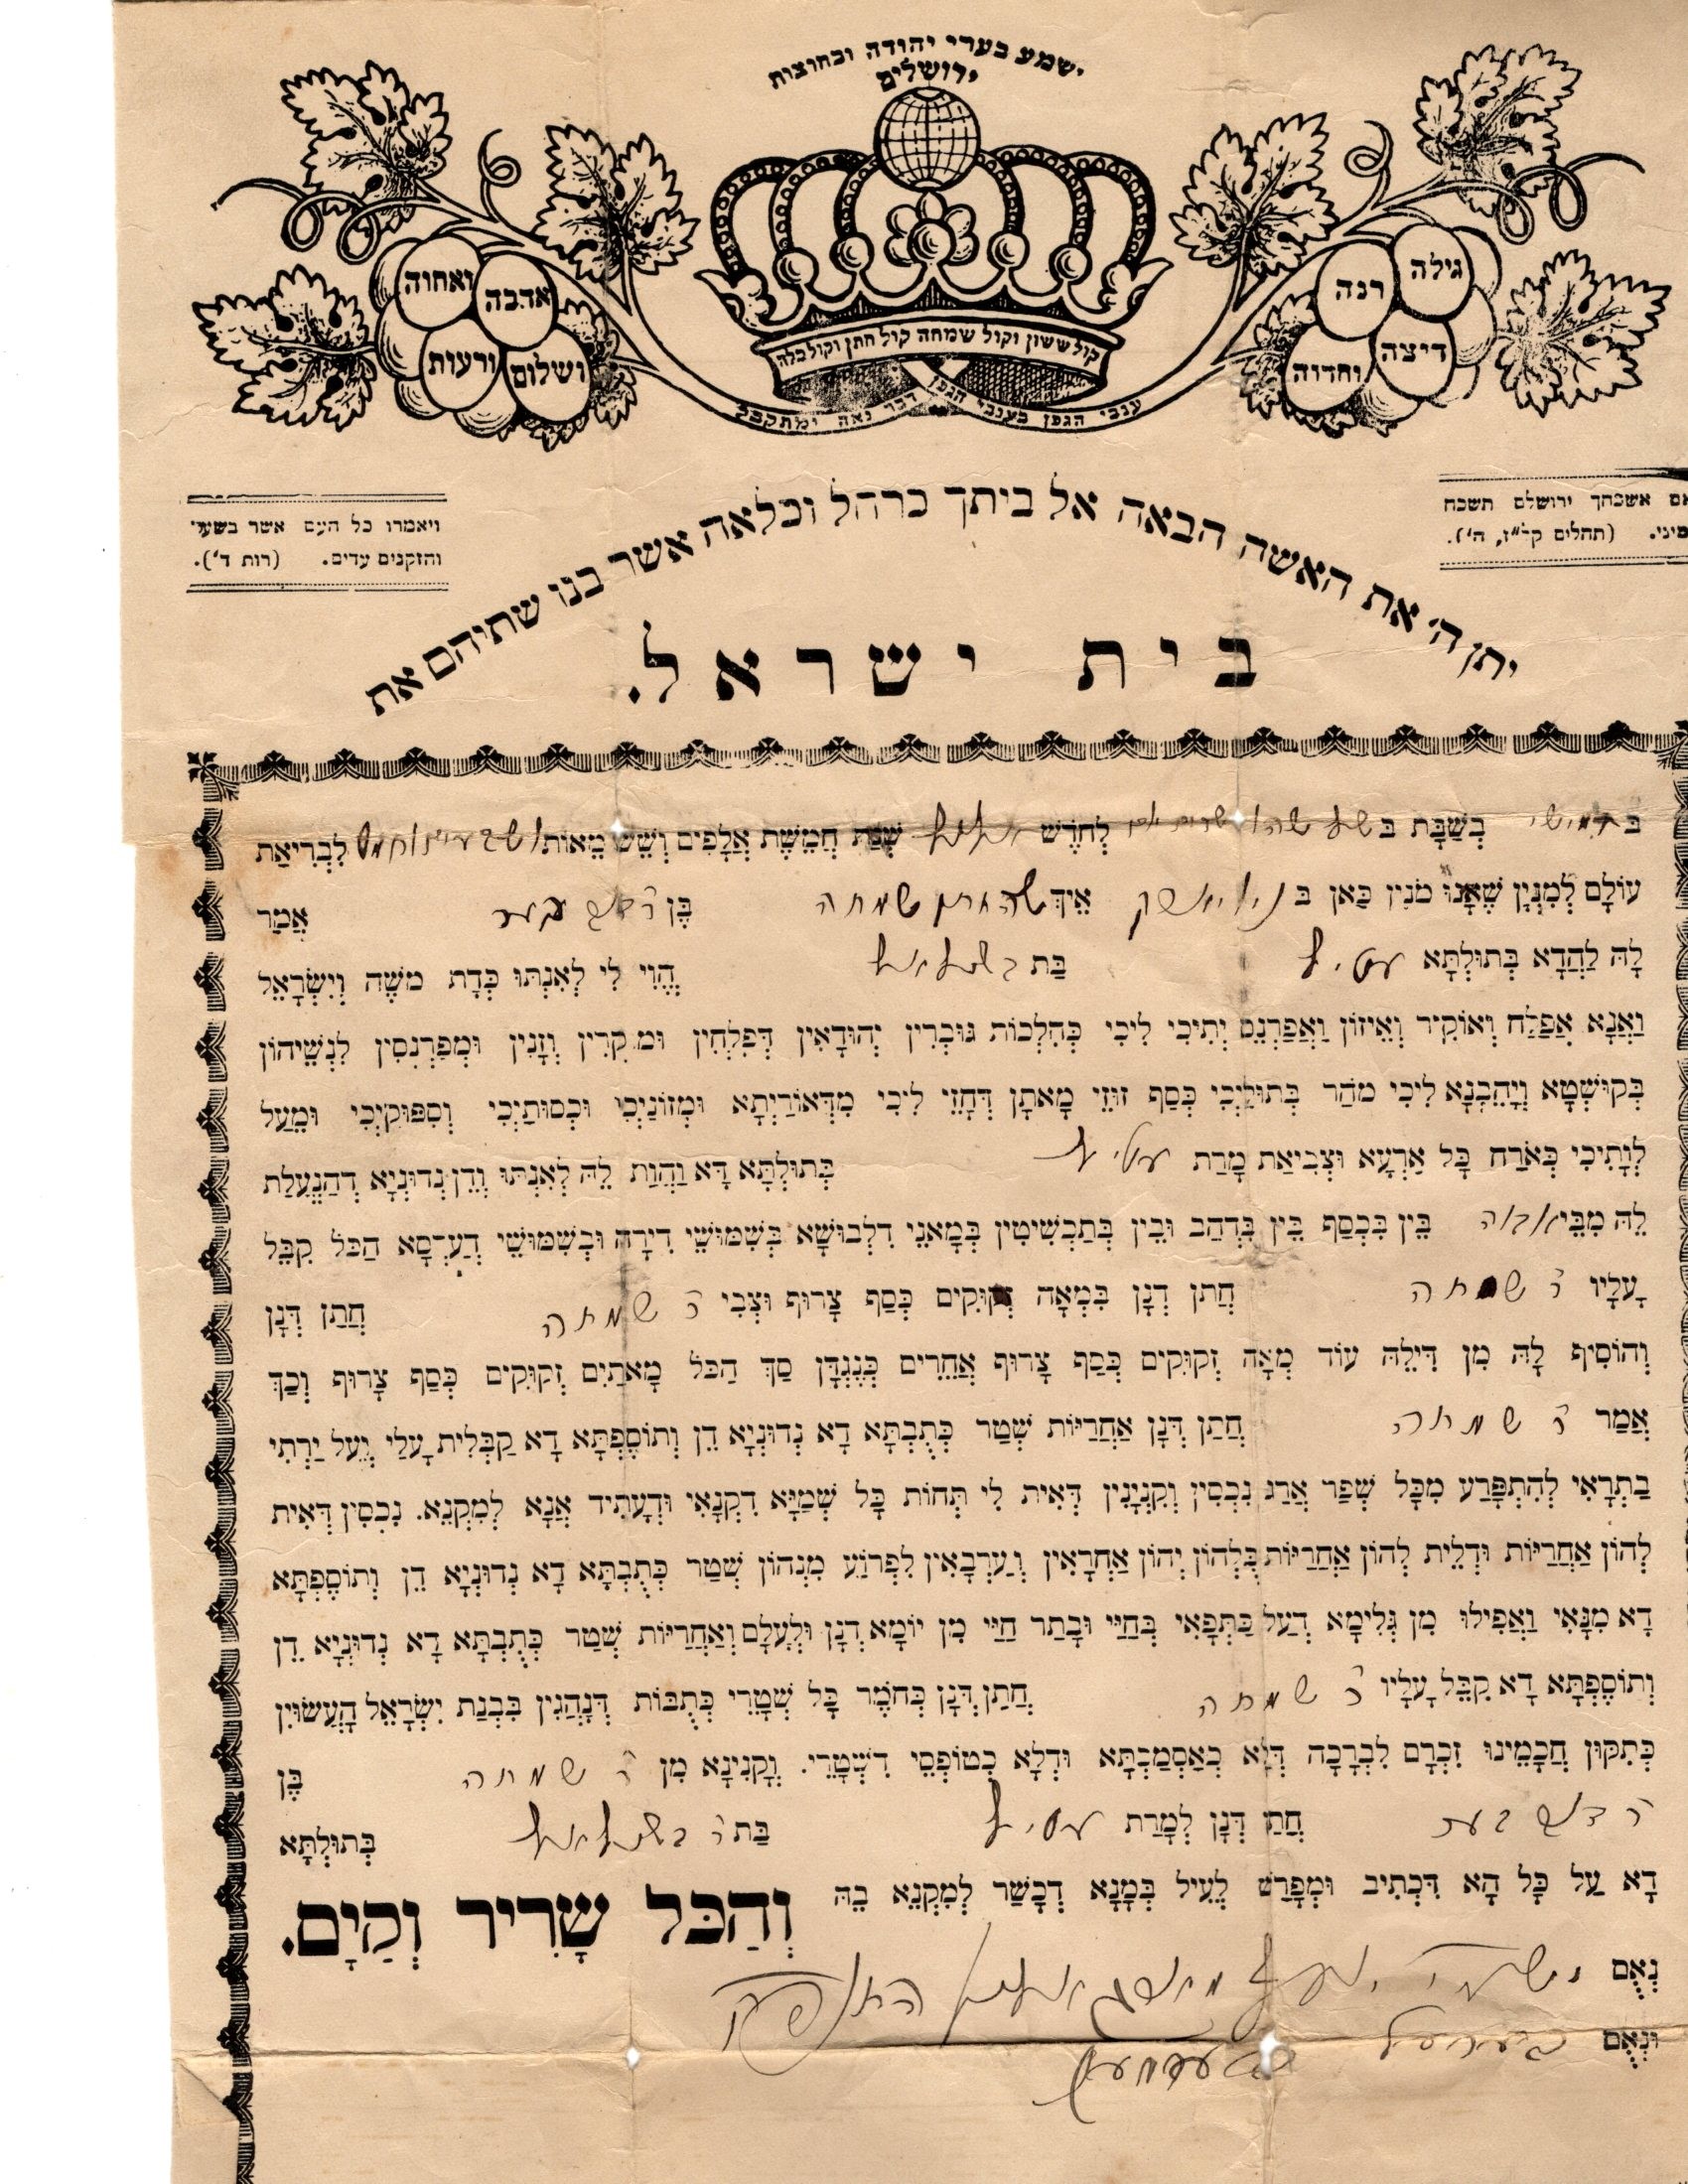 ישמע בערי יהודה ובחוצות
ירושלים
ואחוה
אהבה
ורעות
ושלום
גילה
רנה
דיצה
וחדוה
קול ששון וקול שמחה קול חתן וקול כלה
ענבי הגפן בענבי הגפן דבר נאה ומתקבל
אם אשכחך ירושלם תשכח
ימיני. (תהלים קל"ז, ה').
ויאמרו כל העם אשר בשער
והזקנים עדים. (רות ד').
יתן ה' את האשה הבאה אל ביתך כרחל וכלאה אשר בנו שתיהם את
בית ישראל.
בחמישי בְּשַׁבָּת בּ לְחֹדֶשׁ שְׁנַת חֲמֵשֶׁת אֲלָפִים וְשֵׁשׁ מֵאוֹת ושבעים וחמש לִבְרִיאַת
עוֹלָם לְמִנְיָן שֶׁאָנוּ מֹנִין כַּאן בּ ניו יארק אֵיךְ שהחתן שמחה בֶּן ר' אָמַר
לָהּ לַהֲדָא בְּתוּלְתָּא בַּת הֱוִי לִי לְאִנְתּוּ כְּדָת מֹשֶׁה וְיִשְׂרָאֵל
וַאֲנָא אֶפְלַח וְאוֹקִיר וְאֵיזוֹן וַאֲפַרְנֵס יָתִיכִי לִיכִי כְּהִלְכוֹת גּוּבְרִין יְהוּדָאִין דְּפָלְחִין וּמוֹקְרִין וְזָנִין וּמְפַרְנְסִין לִנְשֵׁיהוֹן
בְּקוּשְׁטָא וְיָהֵבְנָא לִיכִי מֹהַר בְּתוּלַיְכִי כְּסַף זוּזֵי מָאתָן דְּחָזֵי לִיכִי מִדְּאוֹרַיְתָא וּמְזוֹנַיְכִי וּכְסוּתַיְכִי וְסִפּוּקַיְכִי וּמֵעַל
לְוָתִיכִי כְּאֹרַח כָּל אַרְעָא וּצְבִיאַת מָרַת בְּתוּלְתָּא דָּא וַהֲוַת לֵהּ לְאִנְתּוּ וְדֵן נְדוּנְיָא דְהַנְעֵלַת
לֵהּ מִבֵּי אבוה בֵּין בִּכְסַף בֵּין בִּדְהַב וּבֵין בְּתַכְשִׁיטִין בְּמָאנֵי דִלְבוּשָׁא בְּשִׁמּוּשֵׁי דִירָה וּבְשִׁמּוּשֵׁי דְעַרְסָא הַכֹּל קִבֵּל
עָלָיו ר' שמחה חֲתַן דְּנָן בִּמְאָה זְקוּקִים כְּסַף צָרוּף וּצְבִי ר' שמחה חֲתַן דְּנָן
וְהוֹסִיף לָהּ מִן דִּילֵהּ עוֹד מְאָה זְקוּקִים כְּסַף צָרוּף אֲחֵרִים כְּנֶגְדָּן סַךְ הַכֹּל מָאתַיִם זְקוּקִים כְּסַף צָרוּף וְכַךְ
אָמַר ר' שמחה חֲתַן דְּנָן אַחֲרַיּוּת שְׁטַר כְּתֻבְתָּא דָא נְדוּנְיָא דֵן וְתוֹסֶפְתָּא דָא קַבְּלִית עָלַי וְעַל יַרְתִי
בַתְרָאִי לְהִתְפָּרַע מִכָּל שְׁפַר אֲרַג נִכְסִין וְקִנְיָנִין דְּאִית לִי תְּחוֹת כָּל שְׁמַיָּא דִקְנָאִי וּדְעָתִיד אֲנָא לְמִקְנֵא. נִכְסִין דְּאִית
לְהוֹן אַחֲרַיּוּת וּדְלֵית לְהוֹן אַחֲרַיּוּת כֻּלְּהוֹן יְהוֹן אַחְרָאִין וְעַרְבָאִין לִפְרוֹעַ מִנְּהוֹן שְׁטַר כְּתֻבְתָּא דָא נְדוּנְיָא דֵן וְתוֹסֶפְתָּא
דָא מִנָּאִי וַאֲפִילוּ מִן גְּלִימָא דְעַל כַּתְפָאִי בְּחַיַּי וּבָתַר חַיַּי מִן יוֹמָא דְנָן וּלְעָלַם וְאַחֲרַיּוּת שְׁטַר כְּתֻבְתָּא דָא נְדוּנְיָא דֵן
וְתוֹסֶפְתָּא דָא קִבֵּל עָלָיו ר' שמחה חֲתַן דְּנָן כְּחֹמֶר כָּל שְׁטָרֵי כְּתֻבּוֹת דְּנָהֲגִין בִּבְנַת יִשְׂרָאֵל הָעֲשׂוּיִן
כְּתִקּוּן חֲכָמֵינוּ זִכְרָם לִבְרָכָה דְּלָא כְאַסְמַכְתָּא וּדְלָא כְטוֹפְסֵי דִשְׁטָרֵי. וְקָנִינָא מִן ר' שמחה בֶּן
ר' חֲתַן דְּנָן לְמָרַת בַּת ר' בְּתוּלְתָּא
דָא עַל כָּל הָא דִּכְתִיב וּמְפָרַשׁ לְעֵיל בְּמָנָא דְכָשֵׁר לְמִקְנֵא בֵהּ וְהַכֹּל שָׁרִיר וְקַיָּם.
נְאֻם
וּנְאֻם